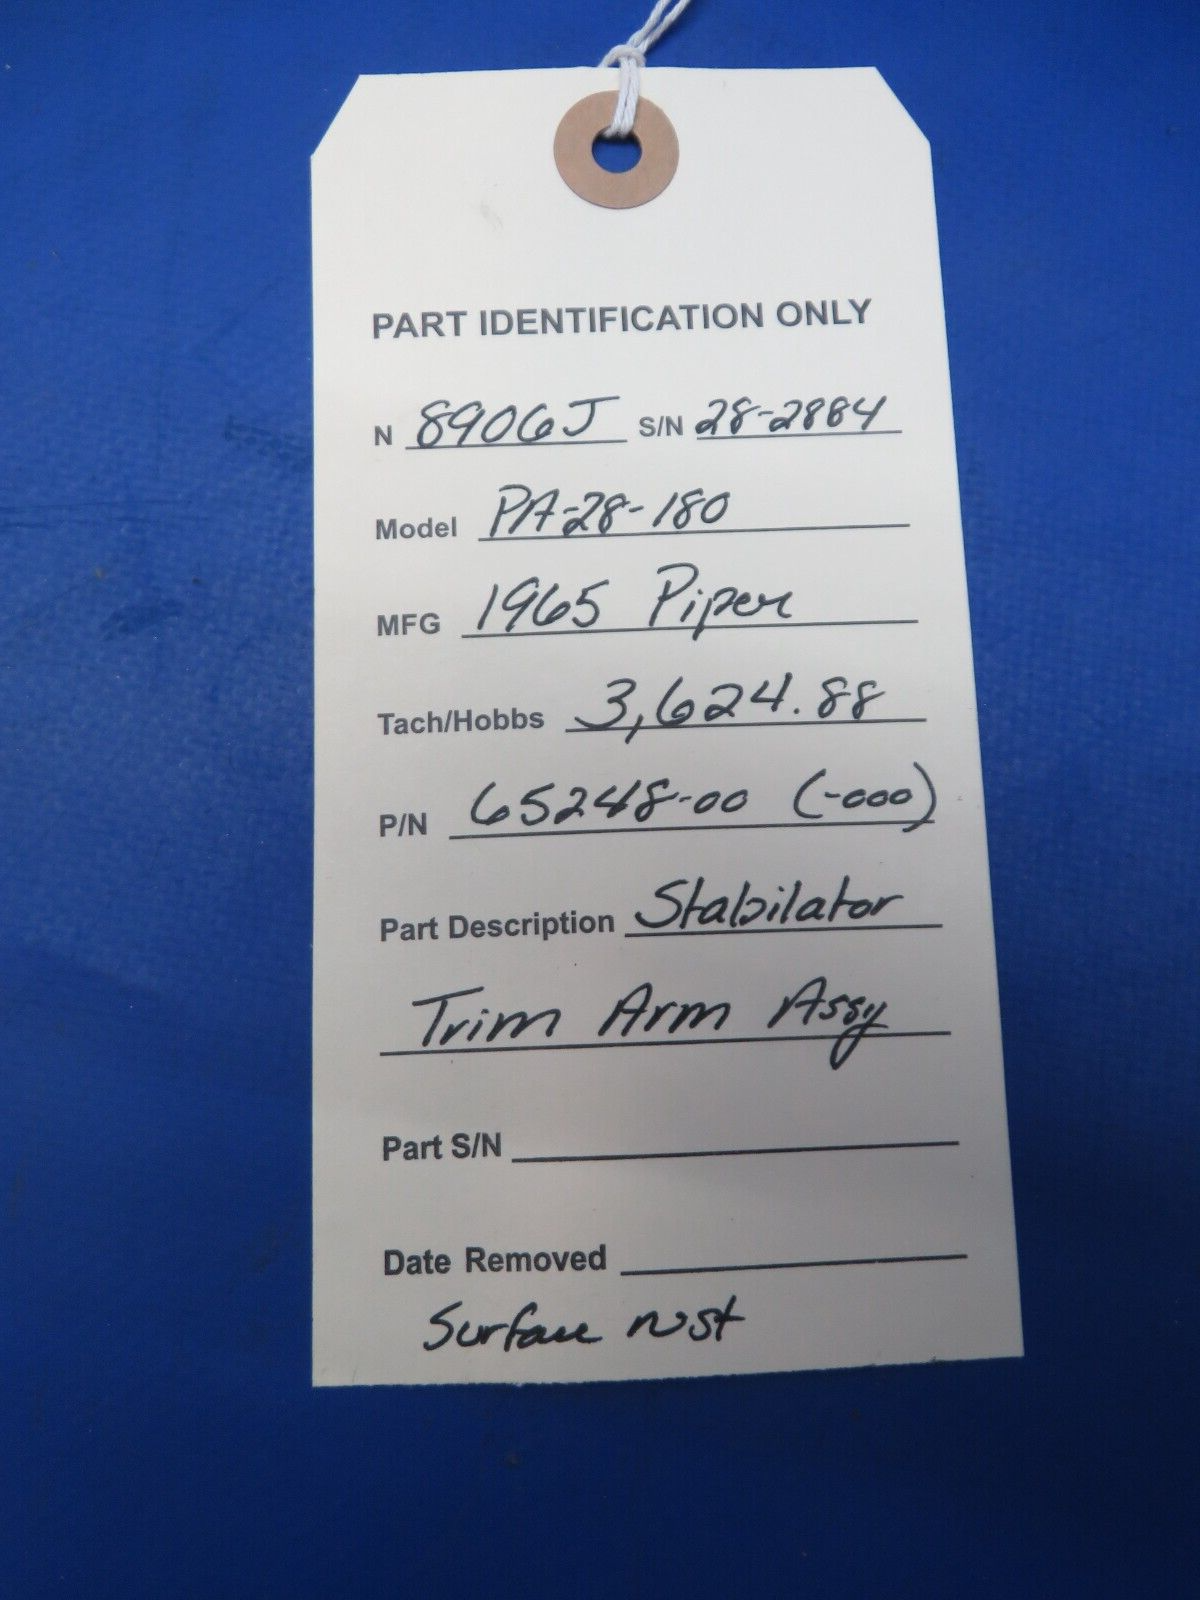 PART IDENTIFICATION ONLY
N 8906J S/N 28-2884
Model PA-28-180
MFG 1965 Piper
Tach/Hobbs 3,624.88
P/N 65248-00 (-000)
Part Description Stabilator
Trim Arm Assy
Part S/N
Date Removed
Surface rust